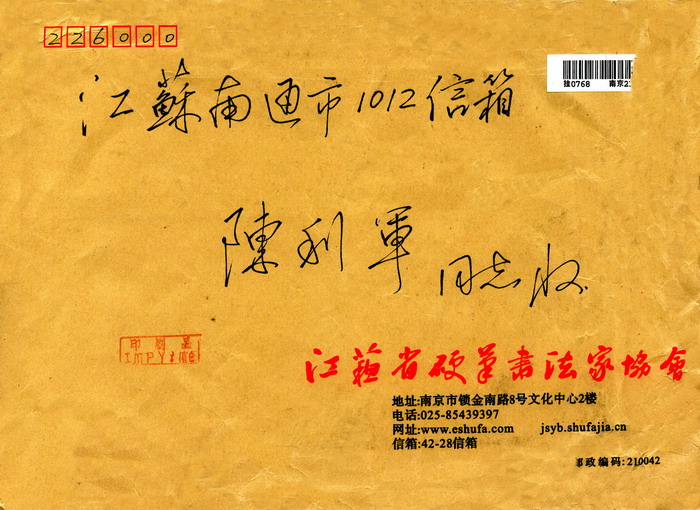 226000
挂0768 南京21
江蘇南通市1012信箱
陳利軍 同志收
印刷品
江蘇省硬筆书法家協會
地址:南京市锁金南路8号文化中心2楼
电话:025-85439397
网址:www.eshufa.com jsyb.shufajia.cn
信箱:42-28信箱
邮政编码:210042